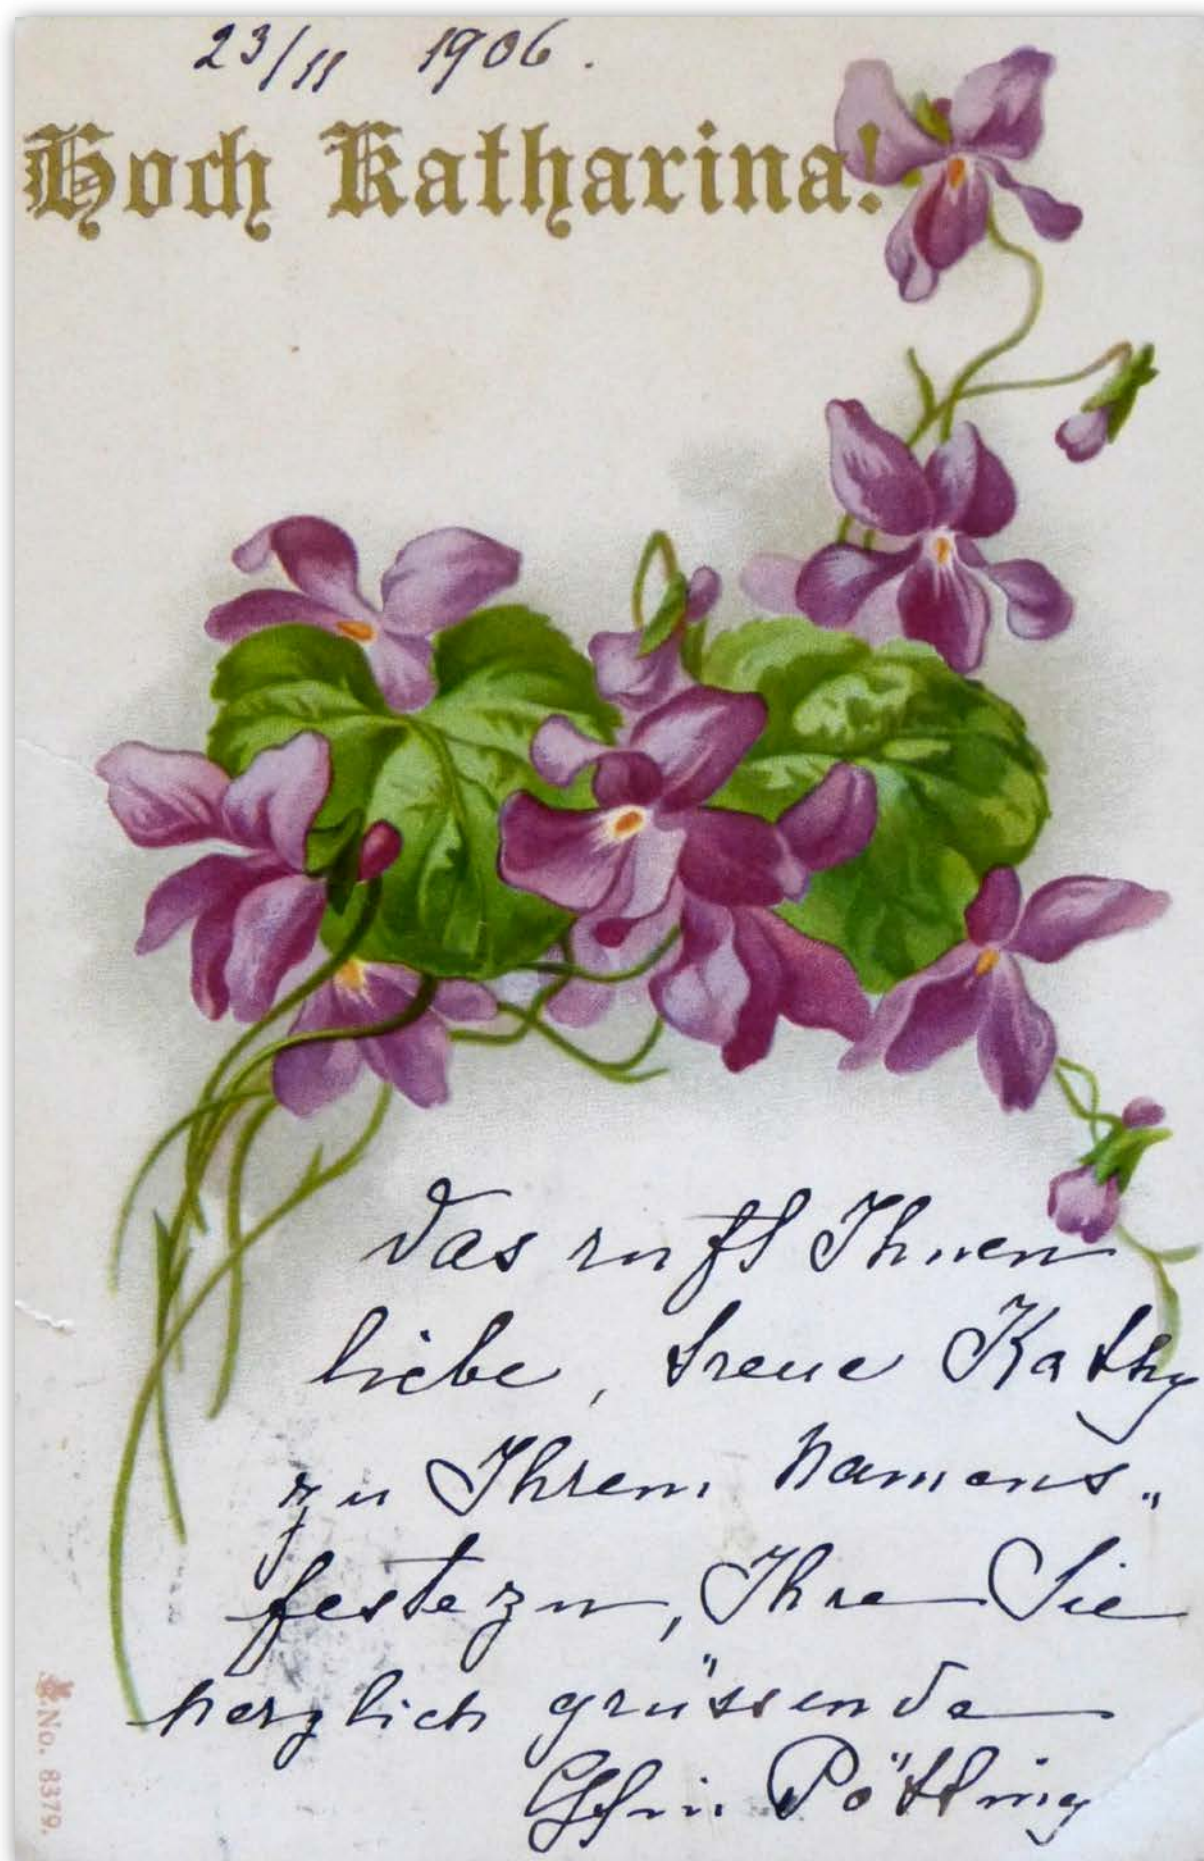 23/11 1906.
Hoch Katharina!
das ruft Ihnen
liebe, treue Kathy
zu Ihrem Namens„
feste zu, Ihre Sie
herzlich grüssende
Gfin Pötting
No. 8379.